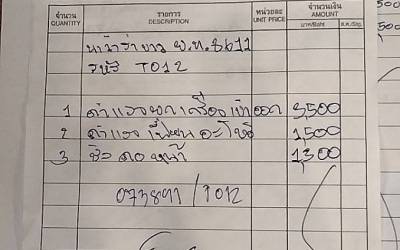 จำนวน รายการ หน่วยละ จำนวนเงิน
QUANTITY DESCRIPTION UNIT PRICE AMOUNT
บาท/Baht ส.ต./Stg.
นาวาร่าขาว 8611
รหัส T012
1 ค่าแรงยกเครื่องเข้าออก 3,500
2 ค่าแรงเปลี่ยนอะไหล่ 1,500
3 หน้า 1,300
073891 / T012
500
500